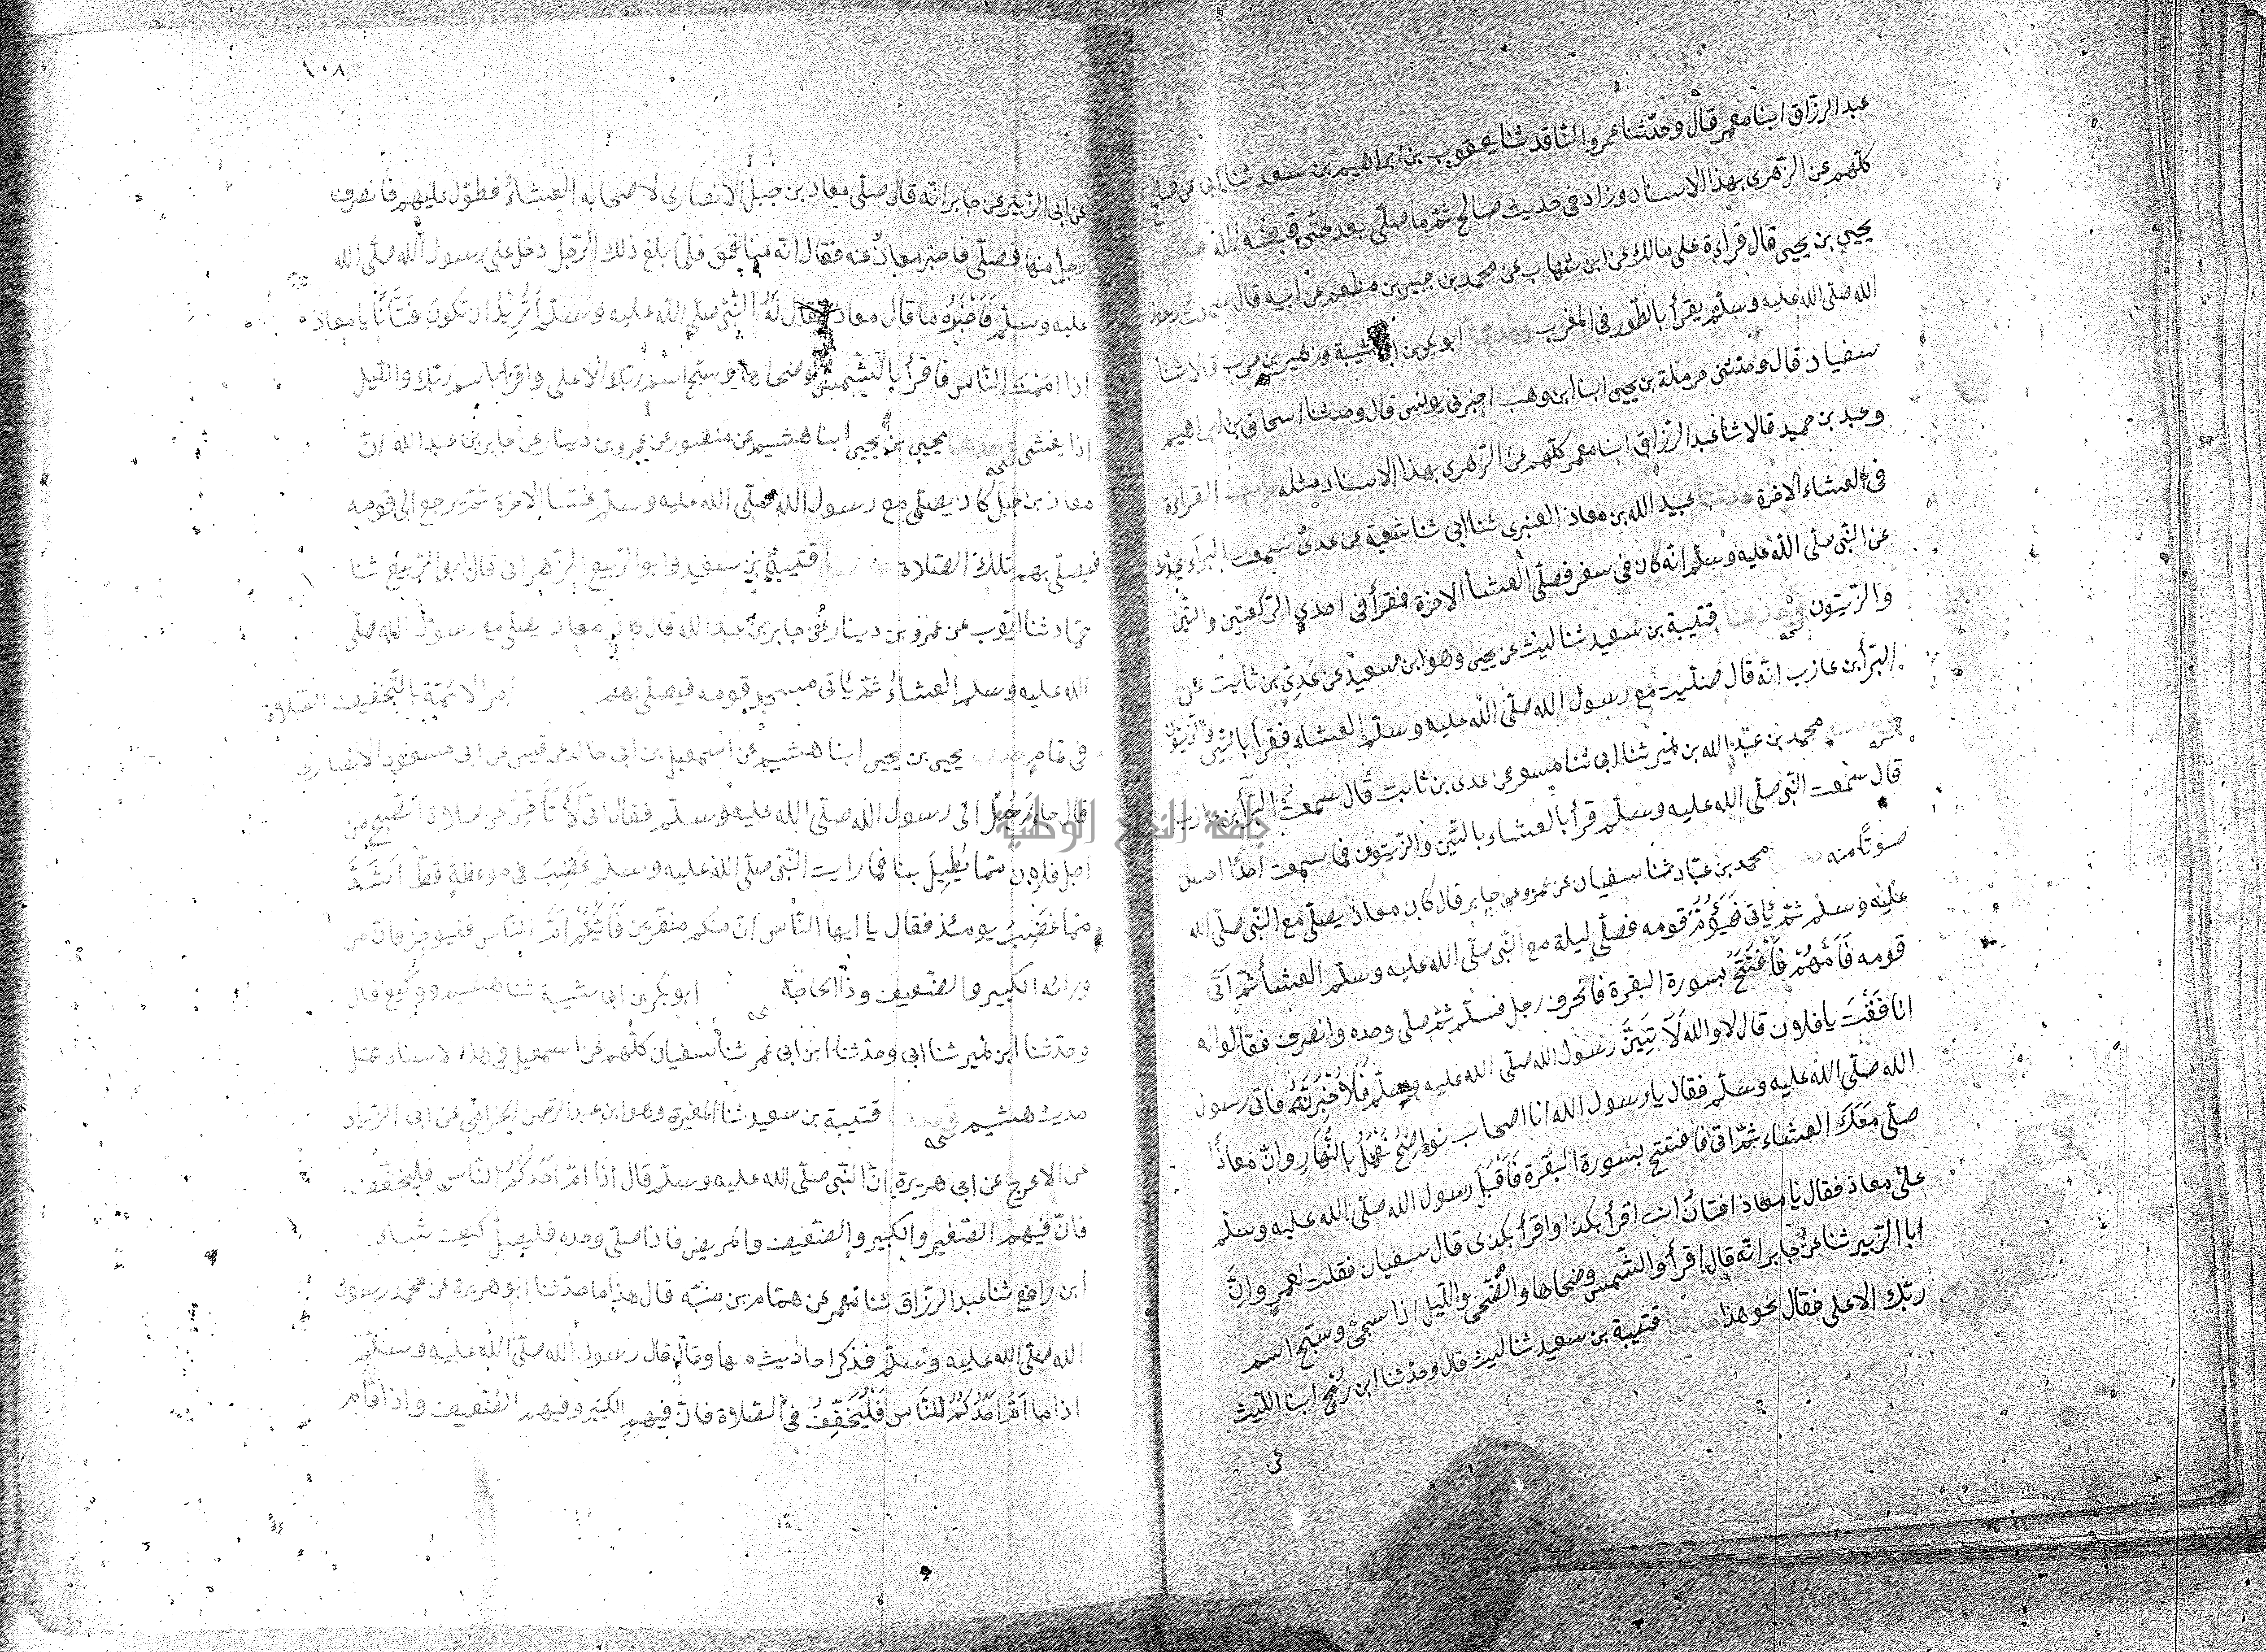 عبد الرزاق ابنا معمر قال وحدثنا عمرو الناقد ثنا يعقوب بن ابراهيم بن سعد ثنا ابي عن صالح
كلهم عن الزهري بهذا الاسناد وزاد في حديث صالح ثم ما صلى بعد حتى قبضه الله حدثنا
يحيى بن يحيى قال قراءة على مالك عن ابن شهاب عن محمد بن جبير بن مطعم عن ابيه قال سمعت رسول
الله صلى الله عليه وسلم يقرأ بالطور في المغرب وحدثنا ابو بكر بن ابي شيبة وزهير بن حرب قالا ثنا
سفيان قال وحدثني حرملة بن يحيى ابنا ابن وهب اخبرني يونس قال وحدثنا اسحاق بن ابراهيم
وعبد بن حميد قالا ثنا عبد الرزاق ابنا معمر كلهم عن الزهري بهذا الاسناد مثله باب القراءة
في العشاء الاخرة حدثنا عبيد الله بن معاذ العنبري ثنا ابي ثنا شعبة عن عدي سمعت البرآء يحدث
عن النبي صلى الله عليه وسلم انه كان في سفر فصلى العشأ الاخرة فقرأ في احدي الركعتين والتين
والزيتون حدثنا قتيبة بن سعيد ثنا ليث عن يحيى وهو ابن سعيد عن عَدِيّ بن ثابت عن
البرأ بن عازب انه قال صليت مع رسول الله صلى الله عليه وسلم العشاء فقرأ بالتين والزيتون
محمد بن عبد الله بن نمير ثنا ابي ثنا مسعر عن عدي بن ثابت قال سمعتُ البرأ بن عازب
قال سمعت النبي صلى الله عليه وسلم قرأ بالعشاء بالتين والزيتون فما سمعت احدًا احسن
صوتًا منه محمد بن عباد ثنا سفيان عن عمرو عن جابر قال كان معاذ يصلي مع النبي صلى الله
عليه وسلم ثم ياتي فَيَؤُمُّ قومه فصلى ليلة مع النبي صلى الله عليه وسلم العشأ ثم اَتَى
قومه فَاَمَّهُمْ فَاَفْتَتَحَ بسورة البقرة فانحرف رجل فسلم ثم صلى وحده وانصرف فقالوا له
انافَقْتَ يا فلان قال لا والله لَآتِيَنَّ رسول الله صلى الله عليه وسلم فَلَاُخْبِرَنَّهُ فاتى رسول
الله صلى الله عليه وسلم فقال يا رسول الله انا اصحاب نواضِحُ نَعْمَلُ بالنَّهَارِ وان معاذًا
صلى مَعَكَ العشاء ثم اتى فافتتح بسورة البقرة فَاَقْبَلَ رسول الله صلى الله عليه وسلم
على معاذ فقال يا معاذ افتانٌ انت اقرأ بكذا واقرأ بكذى قال سفيان فقلت لعمرٍ وانّ
ابا الزبير ثنا عن جابر انه قال اقرأ والشمس وضحاها والضُّحى والليل اذا سجى وسبح اسم
ربك الاعلى فقال نحو هذا حدثنا قتيبة بن سعيد ثنا ليث قال وحدثنا ابن رُمْح ابنا الليث
عن
١٠٨
عن ابي الزبير عن جابر انه قال صلى معاذ بن جبل الانصاري لاصحابه العشاءَ فطوّل عليهم فانصرف
رجل منها فصلى فاخبر معاذٌ عنه فقال انه منافق فلما بلغ ذلك الرجل دخل على رسول الله صلى الله
عليه وسلم فَاَخْبَرَهُ ما قال معاذ فقال لَهُ النبي صلى الله عليه وسلم أتُرِيْدُ ان تكونَ فَتَّانًا يا معاذ
اذا امَمْتَ الناس فاقرأ بالشمس وضحاها وسبح اسم ربك الاعلى واقرأ باسم ربك والليل
اذا يغشى حدثنا يحيى بن يحيى ابنا هشيم عن منصور عن عمرو بن دينار عن جابر بن عبد الله ان
معاذ بن جبل كان يصلي مع رسول الله صلى الله عليه وسلم عشا الاخرة ثم يرجع الى قومه
فيصلي بهم تلك الصلاة حدثنا قتيبة بن سعيد وابو الربيع الزهراني قال ابو الربيع ثنا
حماد ثنا ايوب عن عمرو بن دينار عن جابر بن عبد الله قال كان معاذ يصلي مع رسول الله صلى
الله عليه وسلم العشاءَ ثم يُاتي مسجد قومه فيصلي بهم امر الائمة بالتخفيف الصلاة
في تمامٍ حدثنا يحيى بن يحيى ابنا هشيم عن اسمعيل بن ابي خالد عن قيس عن ابي مسعود الانصاري
قال جاء رَجُلٌ الى رسول الله صلى الله عليه وسلم فقال اني لَاَتَأَخَّرُ عن صلاة الصبح من
اجل فلان مما يُطِيلَ بنا فما رايت النبي صلى الله عليه وسلم غَضِبَ في موعظةٍ قطّ اَشَدَّ
مما غَضِبَ يومئذ فقال يا ايها الناس ان منكم منفرين فَاَيُّكُمْ اَمَّ الناس فليوجز فان من
ورائه الكبير والضعيف وذَا الحاجة ابو بكر بن ابي شيبة ثنا هشيم ووكيع قال
وحدثنا ابن نمير ثنا ابي وحدثنا ابن ابي عمر ثنا سفيان كلهم عن اسمعيل في هذا لاسناد بمثل
حديث هشيم وحدثنا قتيبة بن سعيد ثنا المغيرة وهو ابن عبد الرحمن الحزامي عن ابي الزناد
عن الاعرج عن ابي هريرة انّ النبي صلى الله عليه وسلم قال اذا امّ اَحَدُكُمُ الناس فليخفف
فانّ فيهم الصغير والكبير والضعيف والمريض فاذا صلى وحده فليصلِّ كيف شاء
ابن رافع ثنا عبد الرزاق ثنا معمر عن همام بن منبه قال هذا ما حدثنا ابو هريرة عن محمد رسول
الله صلى الله عليه وسلم فذكر احاذيث منها وقال قال رسول الله صلى الله عليه وسلم
اذا ما اَمَّ اَحَدُكُمْ للنَّاس فَلْيُخَفِّفْ في الصلاة فانّ فيهم الكبير وفيهم الضعيف واذا قام
جامعة النجاح الوطنية